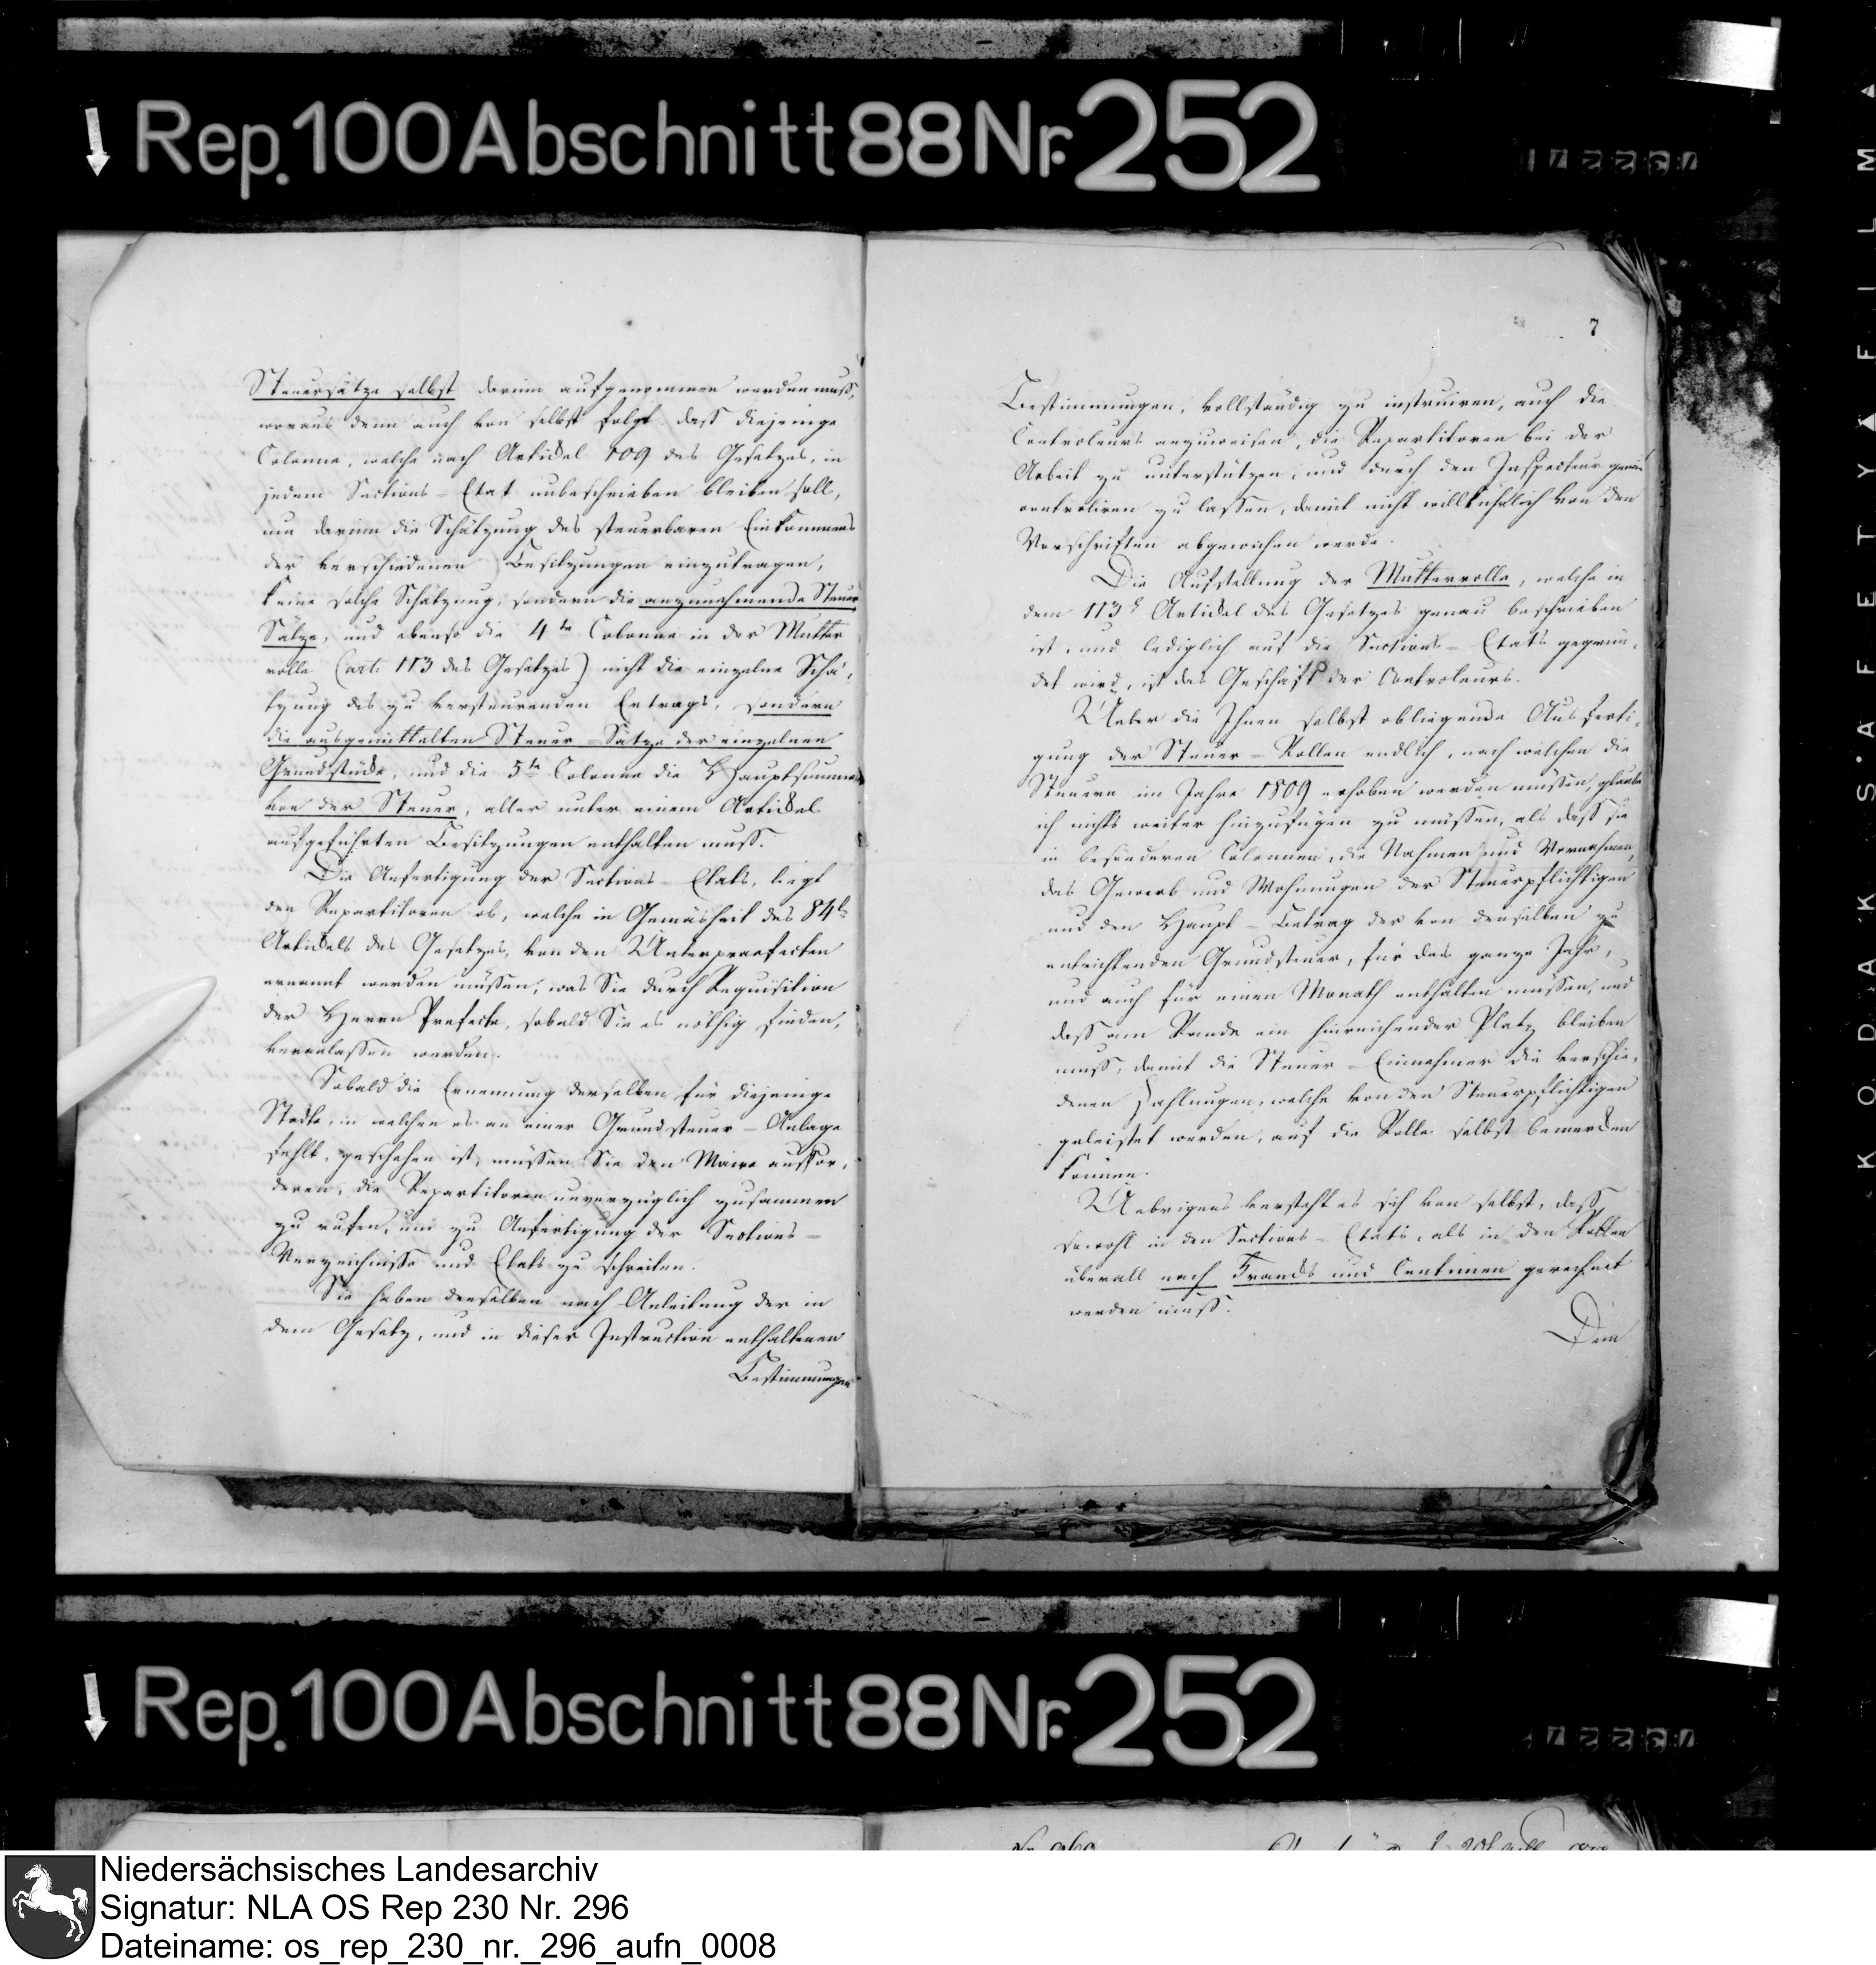 Rep. 100 Abschnitt 88 Nr. 252
Steuersätze selbst darinn aufgenommen werden muß,
woraus denn auch von selbst folgt daß diejenige
Colonne, welche nach Artickel 109 des Gesetzes, in
jedem Sections-Etat unbeschrieben bleiben soll,
um darinn die Schätzung des steuerbaren Einkommens
der verschiedenen Besitzungen einzutragen,
keine solche Schätzung, sondern die anzunehmende Steuer
Sätze, und ebenso die 4te Colonne in der Mutter
rolle (art: 113 des Gesetzes) nicht die einzelne Schä-
tzung des zu versteurenden Ertrags, sondern
die ausgemittelten Steuer-Sätze der einzelnen
Grundstücke, und die 5te Colonne die Hauptsumme
von der Steuer, aller unter einem Artickel
aufgeführten Besitzungen enthalten muß.
Die Anfertigung der Sections-Etats, liegt
den Repartitoren ob, welche in Gemäsheit des 84t
Artickels des Gesetzes, von den Unterpraefecten
ernannt werden müssen, was Sie durch Requisition
der Herrn Prefecte, sobald Sie es nöthig finden,
veranlassen werden.
Sobald die Ernennung derselben für diejenige
Städte, in welchen es an einer Grundsteuer-Anlage
fehlt, geschehen ist, müssen Sie den Maire auffor-
deren, die Repartitoren unverzüglich zusammen
zu rufen, um zu Anfertigung der Sections-
Verzeichnisse und Etats zu schreiten.
Sie haben denselben nach Anleitung der in
dem Gesetz, und in dieser Instruction enthaltenen
Bestimmungen
7
Bestimmungen, vollständig zu instruiren, auch die
Controleurs anzuweisen, die Repartitoren bei der
Arbeit zu unterstützen, und durch den Inspecteur genau
controliren zu lassen, damit nicht willkührlich von den
Vorschriften abgewichen werde.
Die Aufstellung der Mutterrolle, welche in
dem 113t Artickel des Gesetzes genau beschrieben
ist, und lediglich auf die Sections-Etats gegrün-
det wird, ist das Geschäft der Controleurs.
Ueber die Ihnen selbst obliegende Ausferti-
gung der Steuer-Rollen endlich, nach welchen die
Steuern im Jahre 1809 erhoben werden müssen, glaube
ich nichts weiter hinzufügen zu müssen, als daß sie
in besonderen Colonnen, die Nahmen und Vornahmen,
das Gewerb und Wohnungen der Steuerpflichtigen
und den Haupt-Betrag der von denselben zu
entrichtenden Grundsteuer, für das ganze Jahr,
und auch für einen Monath enthalten müssen, und
daß am Rande ein hinreichender Platz bleiben
muß, damit die Steuer-Einnehmer die verschie-
denen Zahlungen, welche von den Steuerpflichtigen
geleistet werden, auf die Rolle selbst bemercken
können.
Uebrigens versteht es sich von selbst, daß
sowohl in den Sections-Etats, als in den Rollen
überall nach Francks und Centimen gerechnet
werden muß.
Dem
Rep. 100 Abschnitt 88 Nr. 252
KODAK · SAFETY FILM
Niedersächsisches Landesarchiv
Signatur: NLA OS Rep 230 Nr. 296
Dateiname: os_rep_230_nr._296_aufn_0008